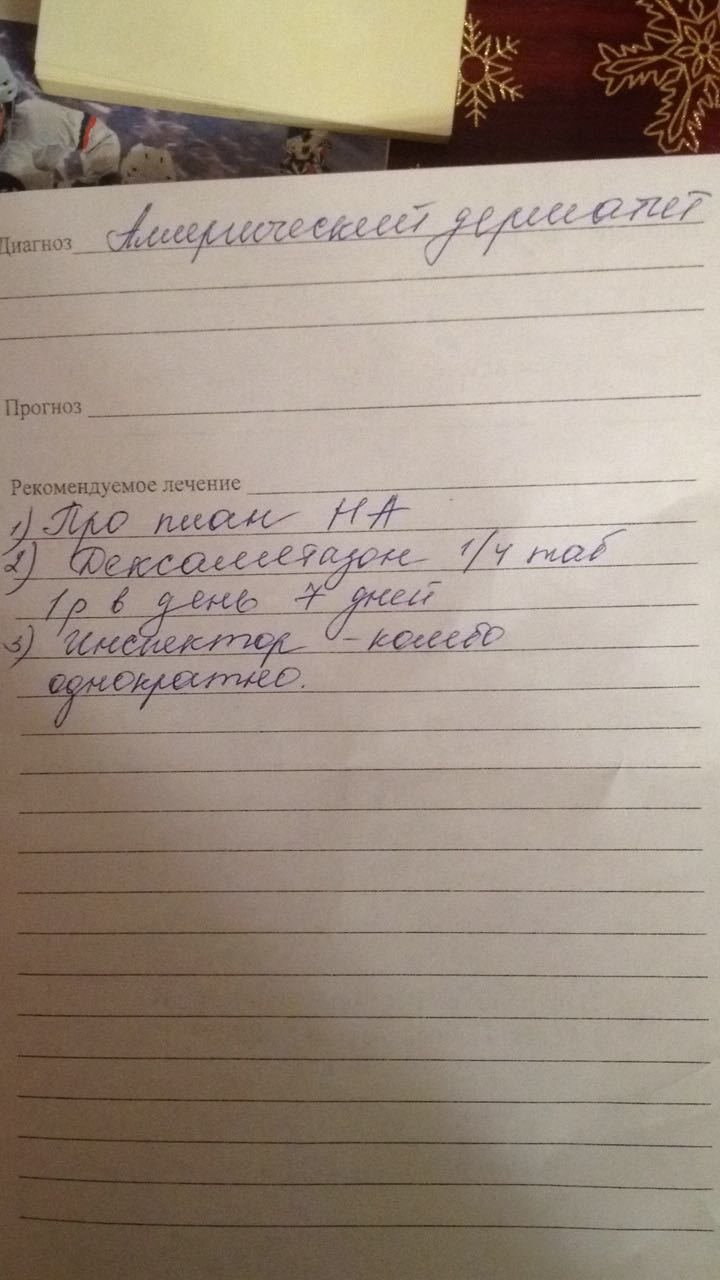 Диагноз Аллергический дерматит
Прогноз
Рекомендуемое лечение
1) Про план НА
2) Дексаметазон 1/4 таб
1р в день 7 дней
3) Инспектор - комбо
однократно.